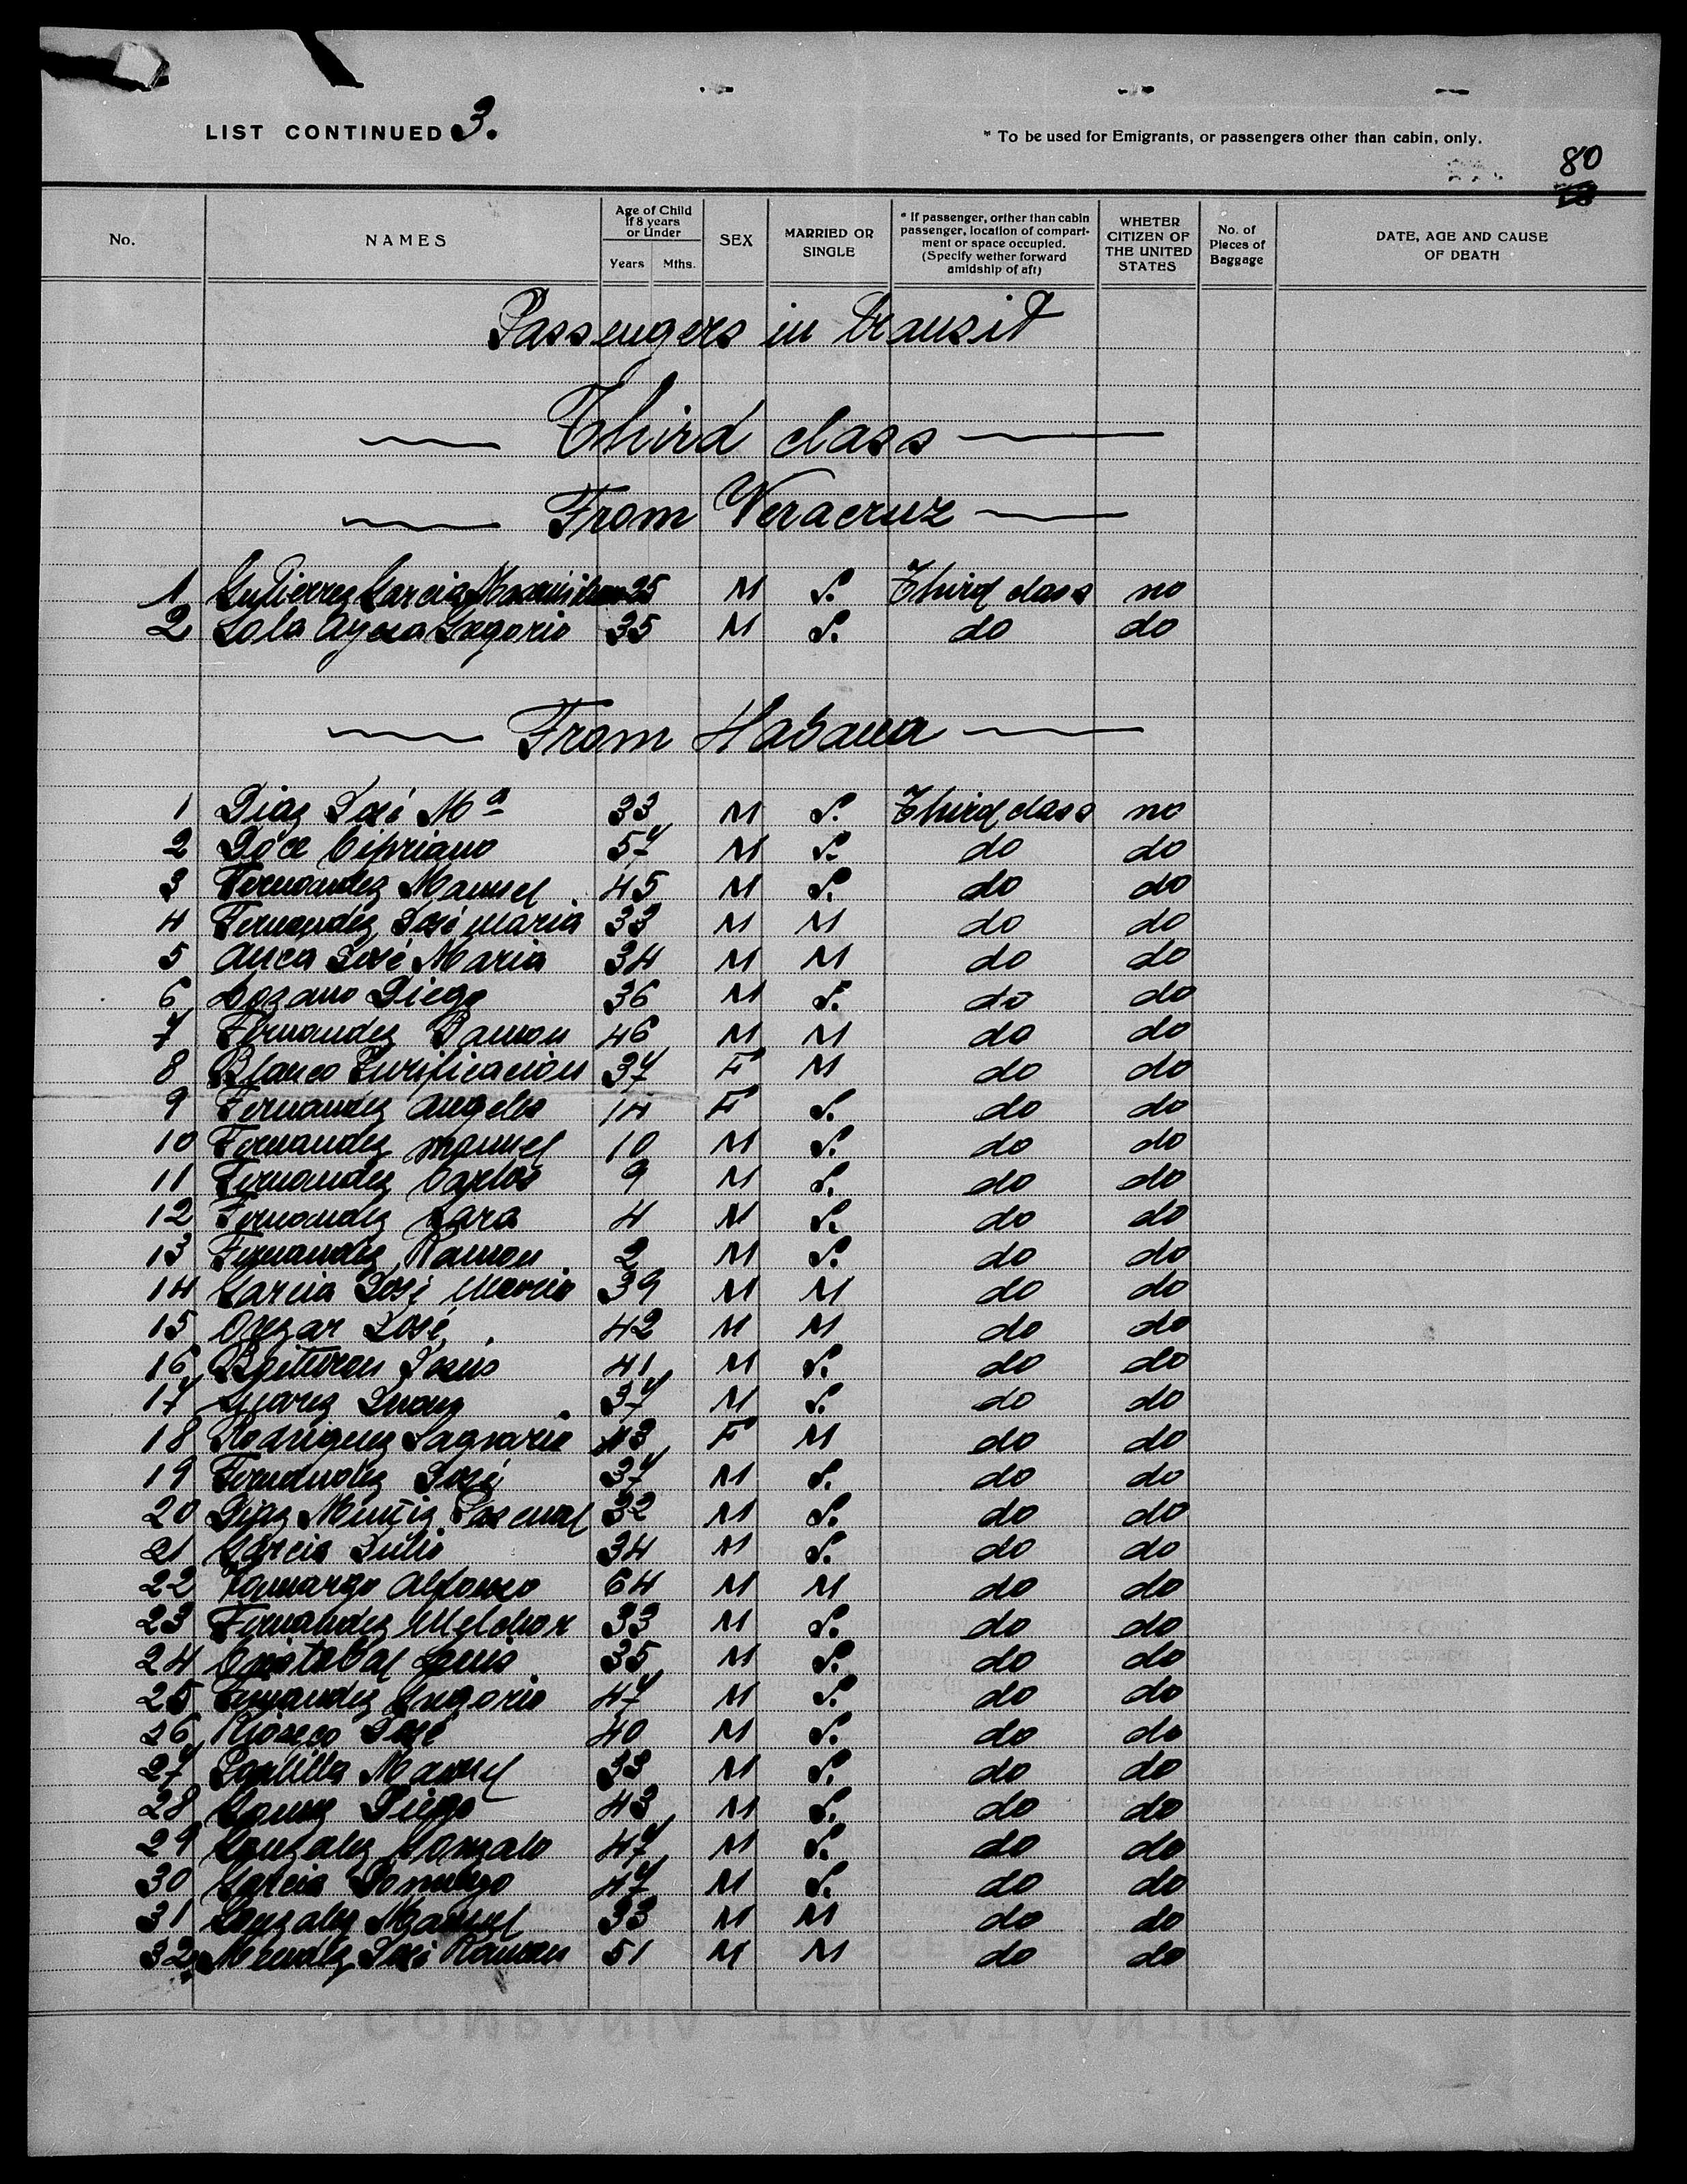 LIST CONTINUED 3.
* To be used for Emigrants, or passengers other than cabin, only.
80
No. NAMES Age of Child if 8 years or Under Years Mths. SEX MARRIED OR SINGLE * If passenger, orther than cabin passenger, location of compartment or space occupied. (Specify wether forward amidship of aft) WHETER CITIZEN OF THE UNITED STATES No. of Pieces of Baggage DATE, AGE AND CAUSE OF DEATH
Passengers in transit
Third class
From Veracruz
1 Gutierrez Garcia 25 M S. Third class no
2 Sola Gregorio 35 M S. do do
From Habana
1 Diaz José Mª 33 M S. Third class no
2 Doce Cipriano 57 M S. do do
3 Fernandez Manuel 45 M S. do do
4 Fernandez José maria 33 M M do do
5 José Maria 34 M M do do
6 Lozano Diego 36 M S. do do
7 Fernandez Ramon 46 M M do do
8 Blanco Purificacion 37 F M do do
9 Fernandez Angeles 14 F S. do do
10 Fernandez manuel 10 M S. do do
11 Fernandez Carlos 9 M S. do do
12 Fernandez Sara 4 M S. do do
13 Fernandez Ramon 2 M S. do do
14 Garcia José Maria 39 M M do do
15 José 42 M M do do
16 Jesus 41 M S. do do
17 Suarez 37 M S. do do
18 Rodriguez Sagrario 43 F M do do
19 Fernandez José 37 M S. do do
20 Diaz Muñiz Pascual 32 M S. do do
21 Garcia Julio 34 M S. do do
22 Camargo Alfonso 64 M M do do
23 Fernandez Melchor 33 M S. do do
24 Cristobal Luis 35 M S. do do
25 Fernandez Gregorio 47 M S. do do
26 Rioseco José 40 M S. do do
27 Manuel 33 M S. do do
28 Diego 43 M S. do do
29 Gonzalez Gonzalo 47 M S. do do
30 Garcia Domingo 47 M S. do do
31 Gonzalez Manuel 33 M M do do
32 Mendez José Ramon 51 M M do do
COMPAÑIA TRASATLANTICA